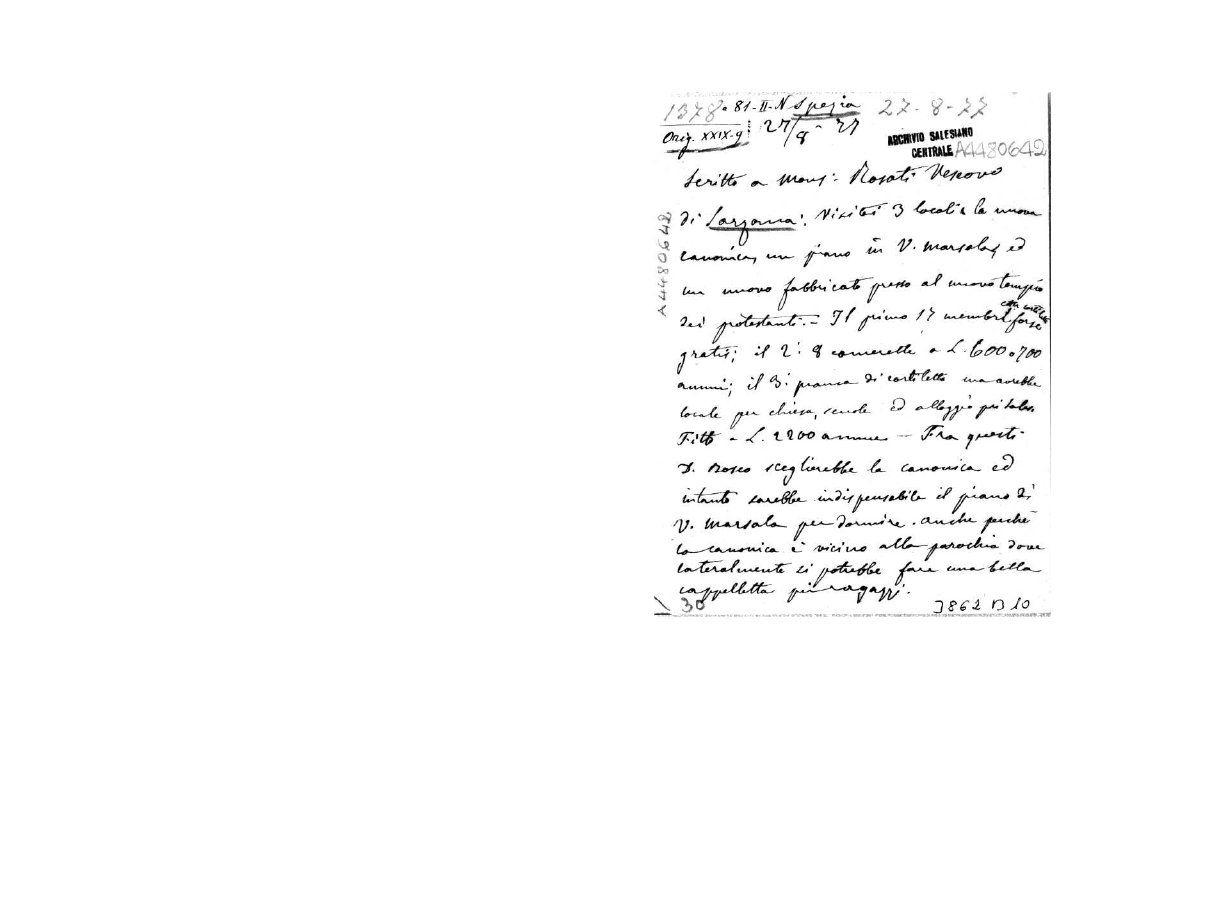 1378 · 81-II-N Spezia 27-8-77
Orig. XXIX-9 27/8-77
ARCHIVIO SALESIANO
CENTRALE A4480642
A4480642
Scritto a Mons: Rosati Vescovo
di Sarzana: Visitai 3 locali la nuova
canonica, un piano in V. Marsala, ed
un nuovo fabbricato presso al nuovo tempio
dei protestanti. - Il primo 17 membri
forse
gratis; il 2: 8 camerette a L. 600 o 700
annui; il 3: manca di cortiletto ma avrebbe
locale per chiesa, scuole ed alloggio
Fitto a L. 2200 annue - Fra questi
D. Bosco sceglierebbe la canonica ed
intanto sarebbe indispensabile il piano di
V. Marsala per dormire. Anche perché
la canonica è vicino alla parochia dove
lateralmente si potrebbe fare una bella
cappelletta pei ragazzi.
30 3862 B 10